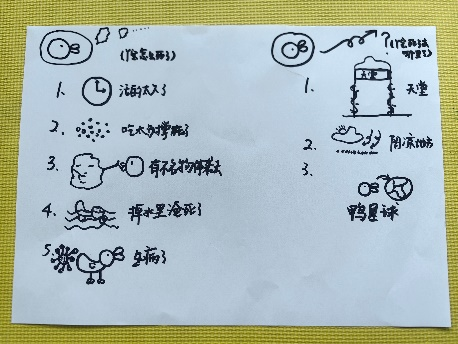 (它怎么死了)
1. 活的太久了
2. 吃太多撑死了
3. 有不名物体袭击
4. 掉水里淹死了
5. 生病了
?
(它死了去哪里了)
1. 天堂 天堂
2. 阴凉地方
3.
鸭星球